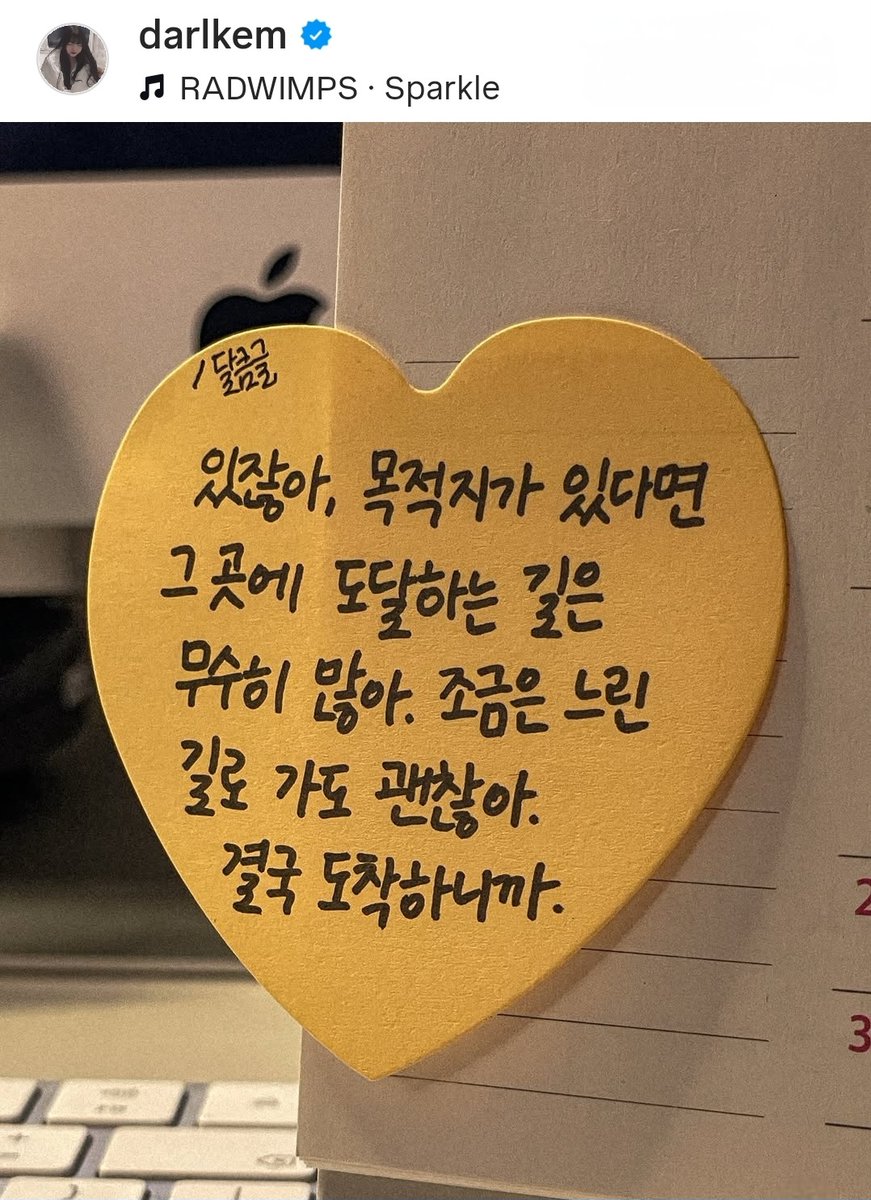 darlkem
RADWIMPS · Sparkle
/달콤글
있잖아, 목적지가 있다면
그곳에 도달하는 길은
무수히 많아. 조금은 느린
길로 가도 괜찮아.
결국 도착하니까.
2
3